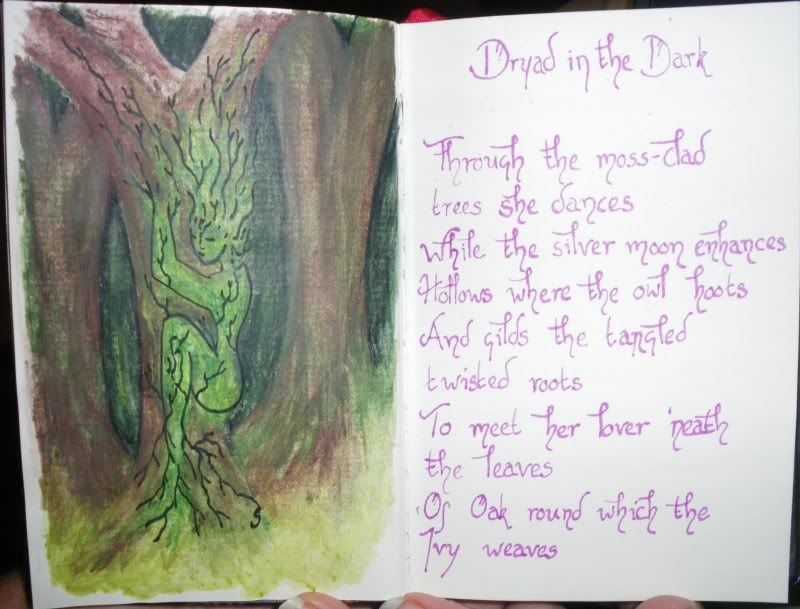 Dryad in the Dark
Through the moss-clad
trees she dances
While the silver moon enhances
Hollows where the owl hoots
And gilds the tangled
twisted roots
To meet her lover 'neath
the leaves
Of Oak round which the
Ivy weaves